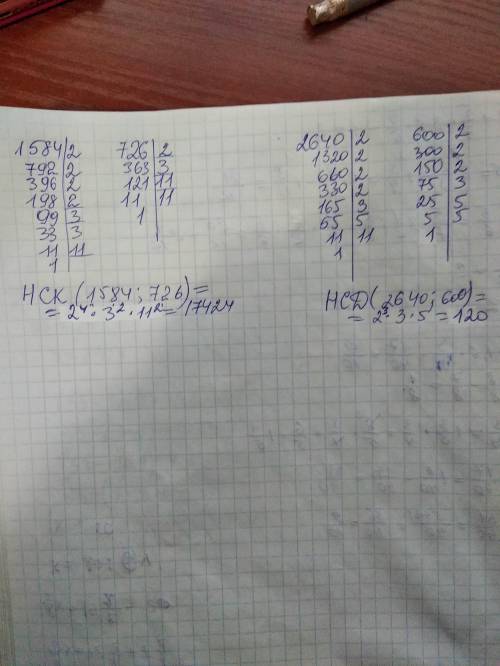 1584|2
792|2
396|2
198|2
99|3
33|3
11|11
1
726|2
363|3
121|11
11|11
1
2640|2
1320|2
660|2
330|2
165|3
65|5
11|11
1
600|2
300|2
150|2
75|3
25|5
5|5
1
НСК (1584; 726)=
= 2⁴ · 3² · 11² = 17424
НСД(2640; 600)=
= 2³ · 3 · 5 = 120